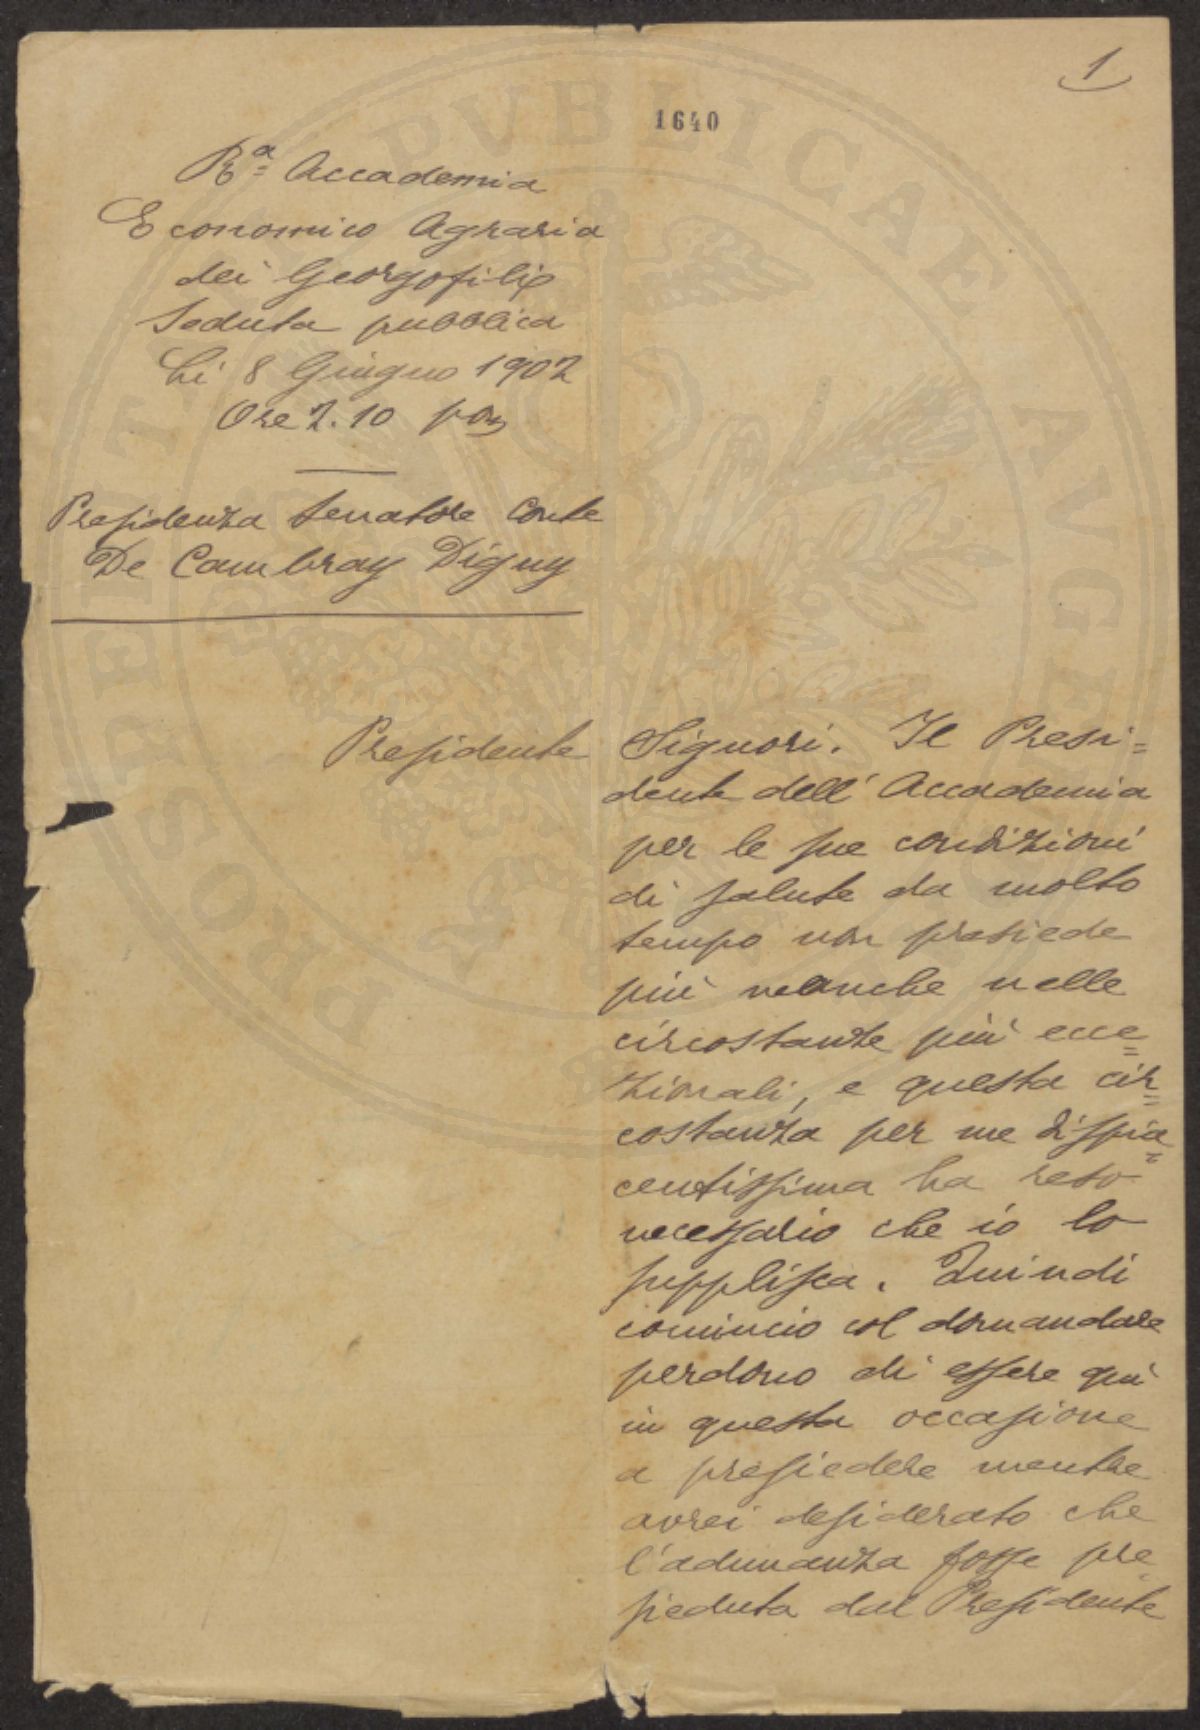 1
1640
Rª Accademia
Economico Agraria
dei Georgofili
Seduta pubblica
li 8 Giugno 1902
Ore 2.10 pom
Presidenza Senatore Conte
De Cambray Digny
Presidente
Signori. Il Presi=
dente dell' Accademia
per le sue condizioni
di salute da molto
tempo non presiede
più neanche nelle
circostanze più ecce=
zionali, e questa cir=
costanza per me dispia=
centissima ha reso
necessario che io lo
supplisca. Quindi
comincio col domandare
perdono di essere quì
in questa occasione
a presiedere mentre
avrei desiderato che
l'adunanza fosse pre
sieduta dal Presidente
PROSPERITATI PVBLICAE AVGENDAE